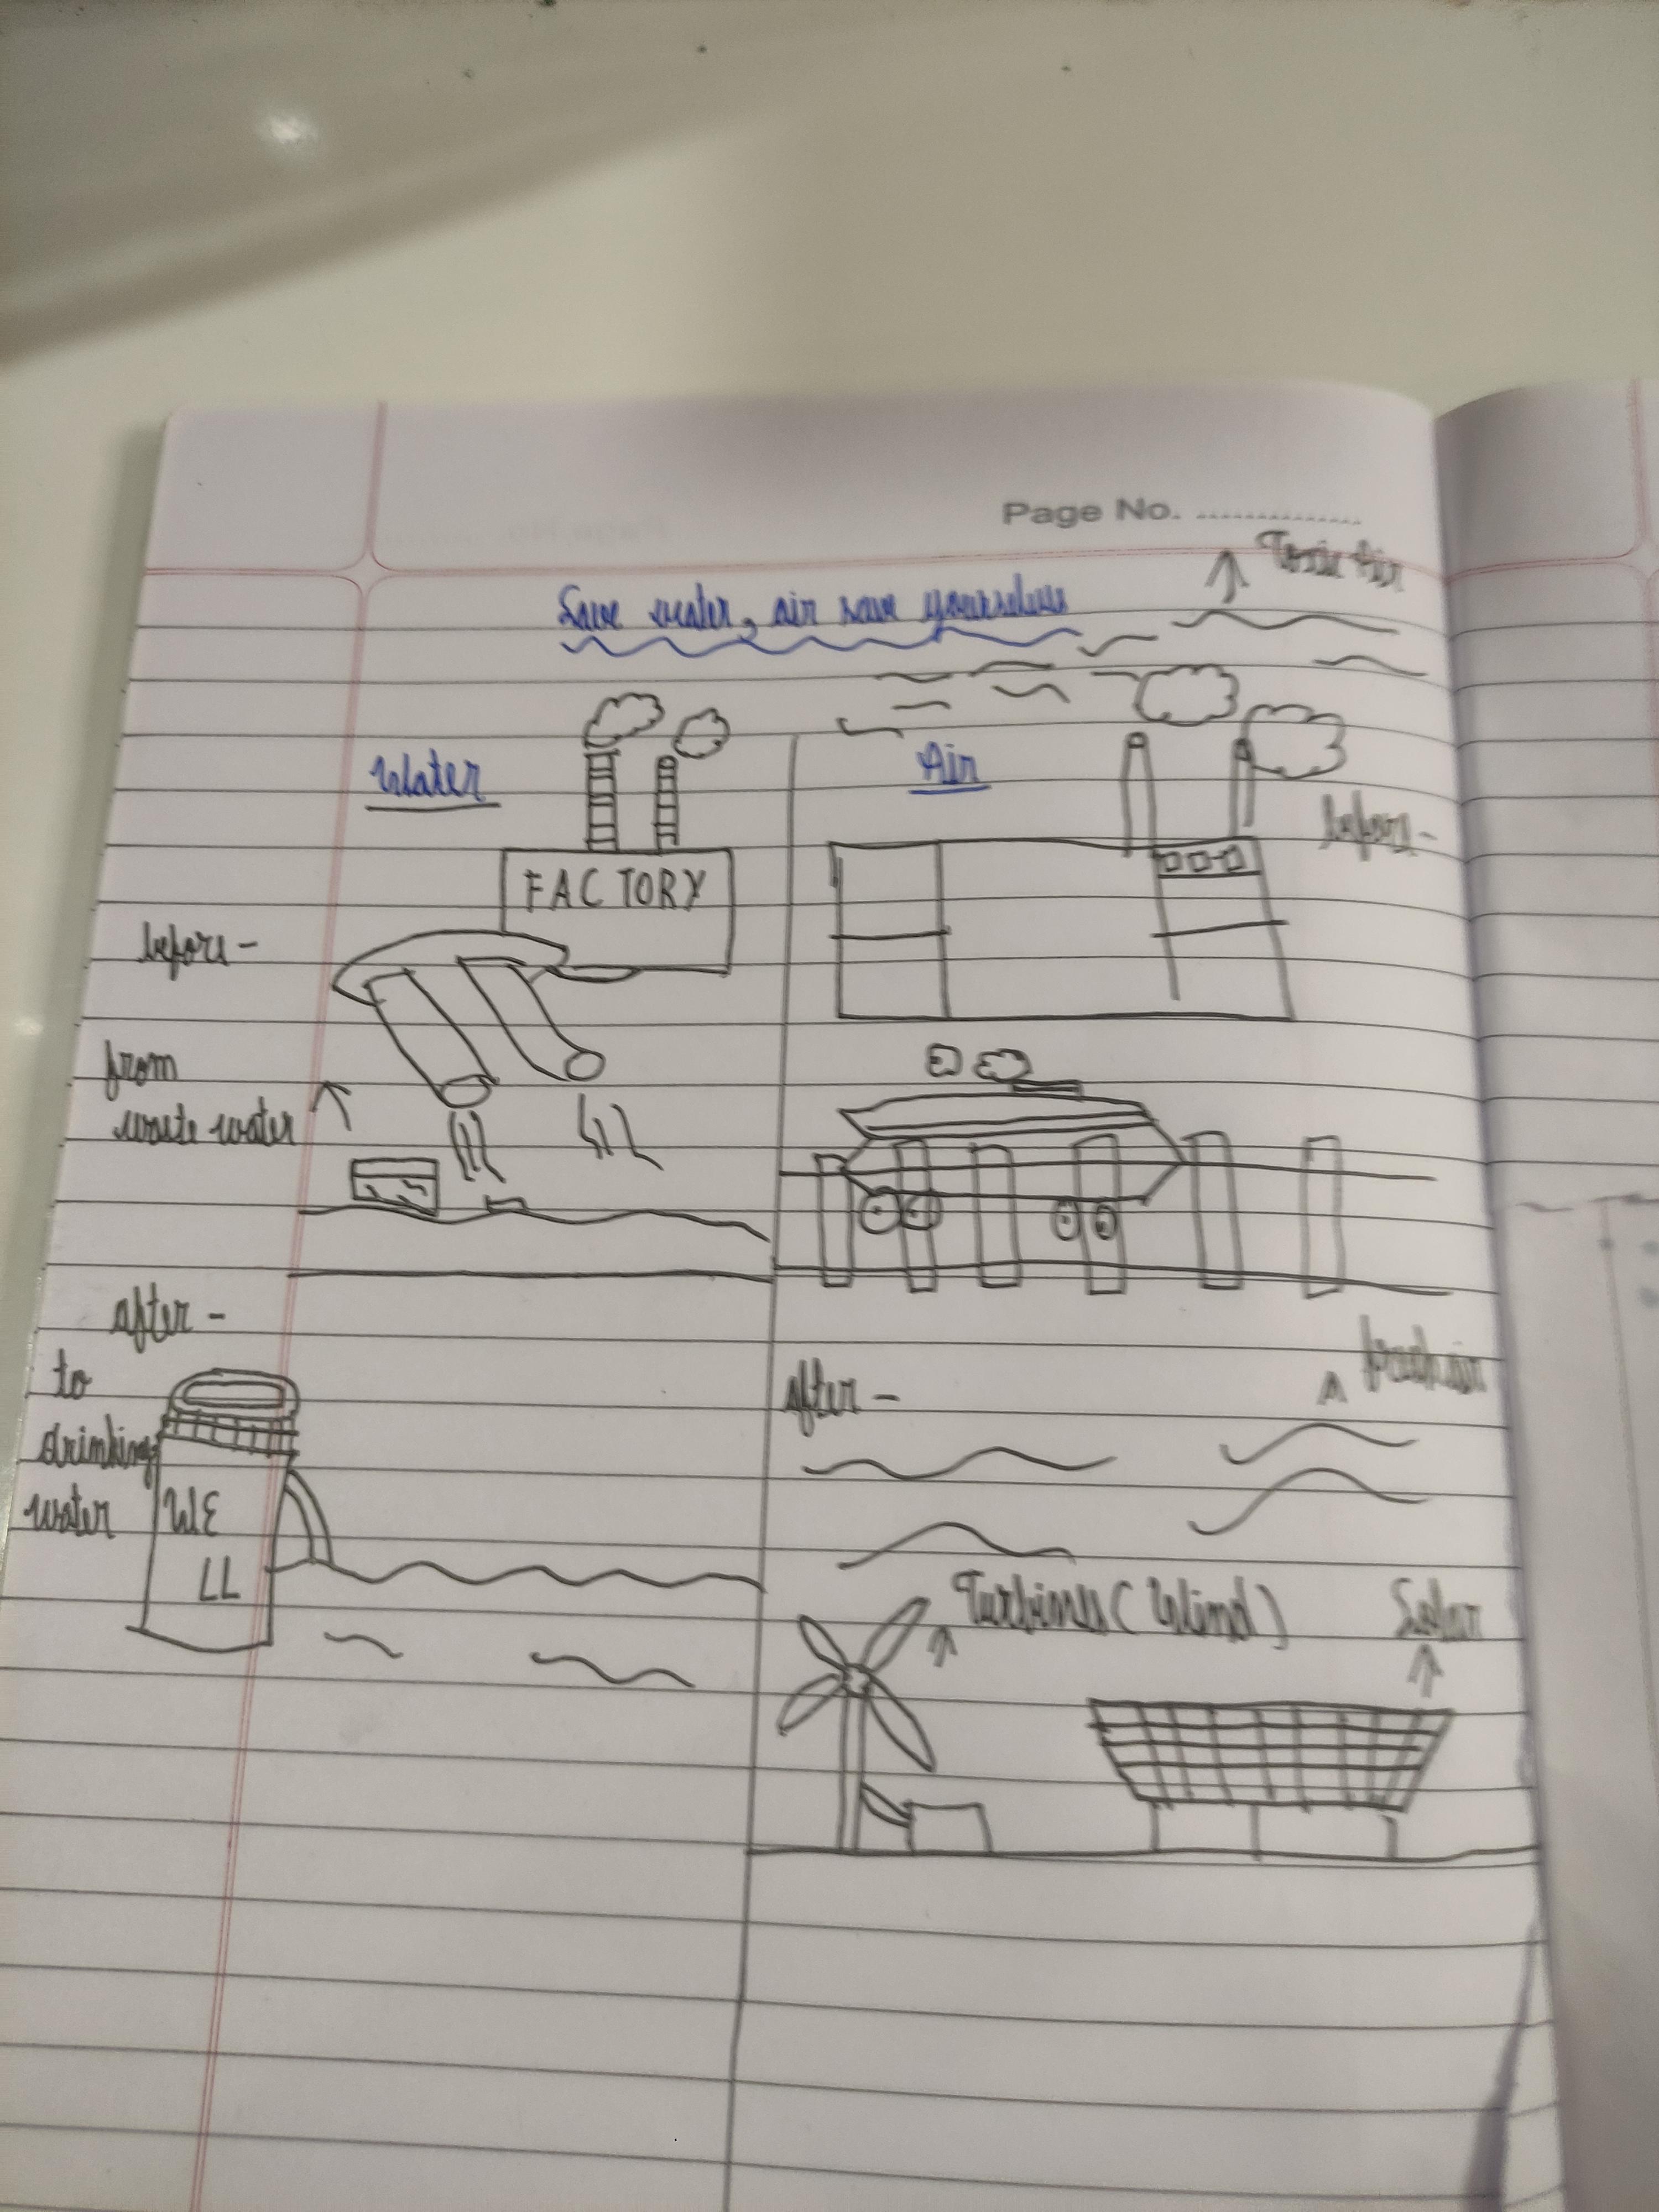 Page No. ..............
Toxic Air
Save water, air save yourselves
Water
Air
before -
FACTORY
before -
from
waste water
after -
to
drinking
water
WE
LL
after -
fresh air
Turbines (Wind)
Solar